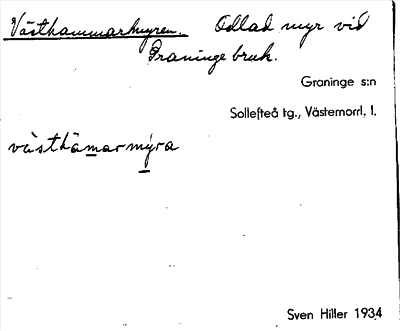 Västhammarmyren. Odlad myr vid
Graninge bruk.
Graninge s:n
Sollefteå tg., Västernorrl. l.
västhämarmýra
Sven Hiller 1934